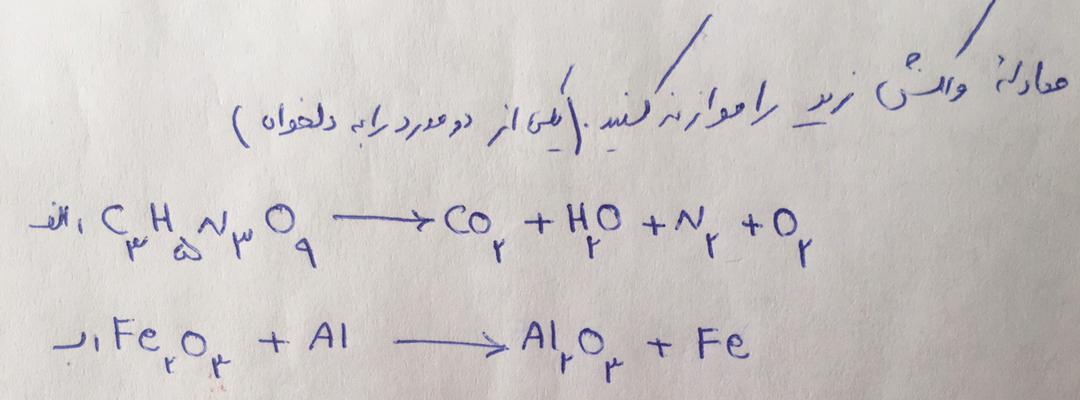 معادلهٔ واکنش زیر را موازنه کنید. (یکی از دو مورد را به دلخواه)
الف) C۳H۵N۳O۹ → CO۲ + H۲O + N۲ + O۲
ب) Fe۲O۳ + Al → Al۲O۳ + Fe